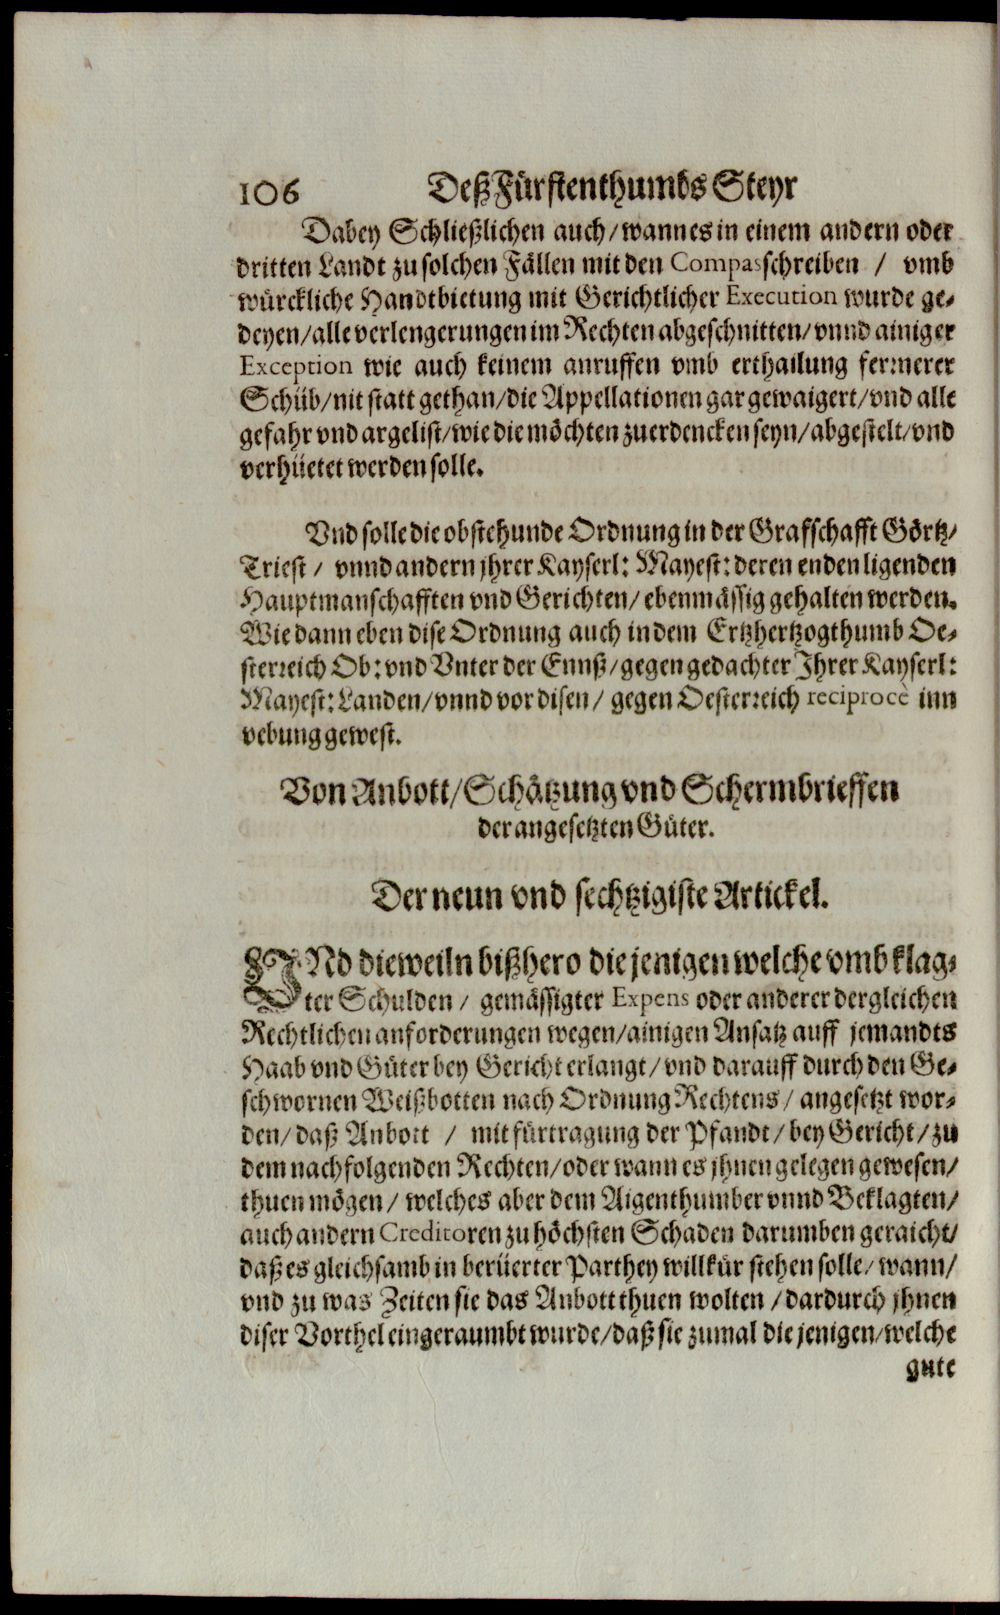 106 Deß Fürstenthumbs Steyr
Dabey Schließlichen auch / wann es in einem andern oder
dritten Landt zu solchen Fällen mit den Compasschreiben / vmb
würckliche Handtbietung mit Gerichtlicher Execution wurde ge-
deyen / alle verlengerungen im Rechten abgeschnitten / vnnd ainiger
Exception wie auch keinem anruffen vmb erthailung fermerer
Schüb / nit statt gethan / die Appellationen gar gewaigert / vnd alle
gefahr vnd argelist / wie die möchten zuerdencken seyn / abgestelt / vnd
verhüetet werden solle.
Vnd solle die obstehunde Ordnung in der Grafschafft Görtz /
Triest / vnnd andern jhrer Kayserl: Mayest: deren enden ligenden
Hauptmanschafften vnd Gerichten / ebenmässig gehalten werden.
Wie dann eben dise Ordnung auch in dem Ertzhertzogthumb Oe-
sterreich Ob: vnd Vnter der Ennß / gegen gedachter Ihrer Kayserl:
Mayest: Landen / vnnd vor disen / gegen Oesterreich reciprocè inn
vebung gewest.
Von Anbott / Schätzung vnd Schermbrieffen
der angesetzten Güter.
Der neun vnd sechtzigiste Artickel.
VNd dieweiln bißhero die jenigen welche vmb klag-
ter Schulden / gemässigter Expens oder anderer dergleichen
Rechtlichen anforderungen wegen / ainigen Ansatz auff jemandts
Haab vnd Güter bey Gericht erlangt / vnd darauff durch den Ge-
schwornen Weißbotten nach Ordnung Rechtens / angesetzt wor-
den / daß Anbott / mit fürtragung der Pfandt / bey Gericht / zu
dem nachfolgenden Rechten / oder wann es jhnen gelegen gewesen /
thuen mögen / welches aber dem Aigenthumber vnnd Beklagten /
auch andern Creditoren zu höchsten Schaden darumben geraicht /
daß es gleichsamb in berüerter Parthey willkür stehen solle / wann /
vnd zu was Zeiten sie das Anbott thuen wolten / dardurch jhnen
diser Vorthel eingeraumbt wurde / daß sie zumal die jenigen / welche
gute